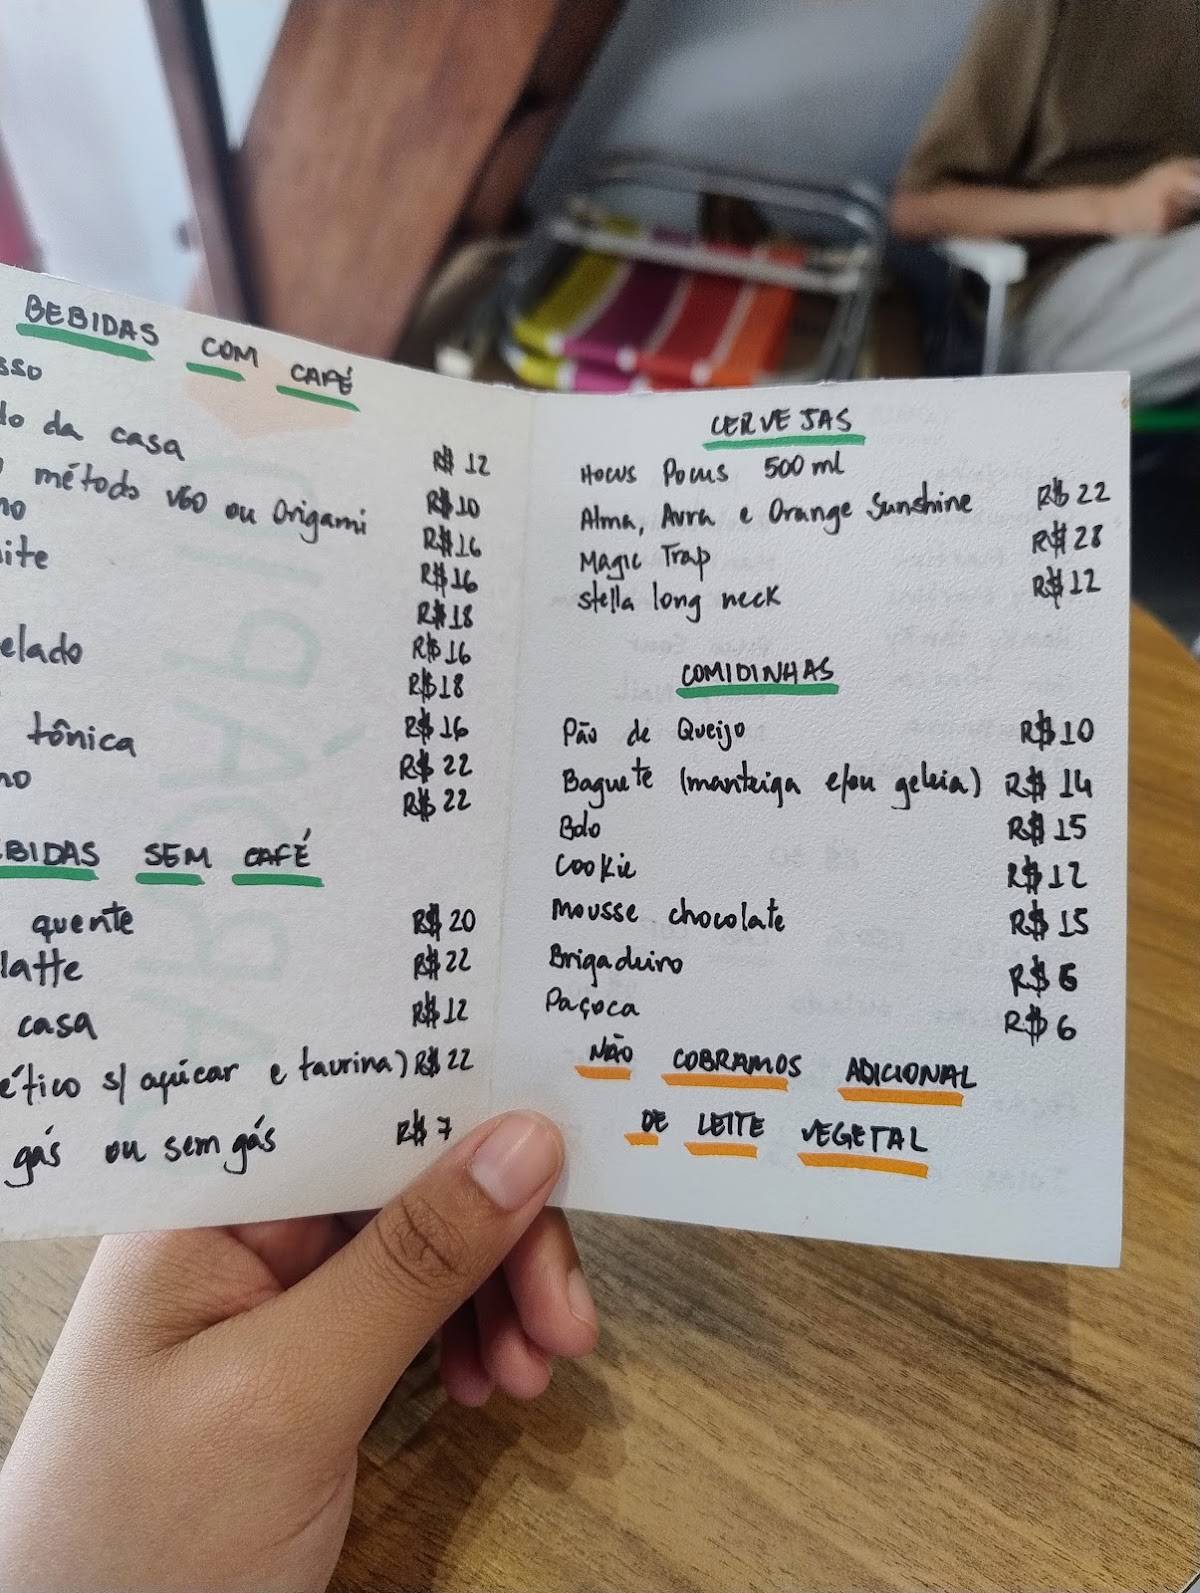 BEBIDAS COM CAFÉ
sso R$ 12
do da casa R$ 10
método V60 ou Origami R$ 16
no R$ 16
ite R$ 18
R$ 16
elado R$ 18
R$ 16
tônica R$ 22
no R$ 22
BIDAS SEM CAFÉ
quente R$ 20
latte R$ 22
casa R$ 12
ético s/ açúcar e taurina) R$ 22
gás ou sem gás R$ 7
CERVEJAS
Hocus Pocus 500 ml
Alma, Aura e Orange Sunshine R$ 22
Magic Trap R$ 28
stella long neck R$ 12
COMIDINHAS
Pão de Queijo R$ 10
Baguete (manteiga e/ou geleia) R$ 14
Bolo R$ 15
Cookie R$ 12
Mousse chocolate R$ 15
Brigadeiro R$ 6
Paçoca R$ 6
NÃO COBRAMOS ADICIONAL
DE LEITE VEGETAL